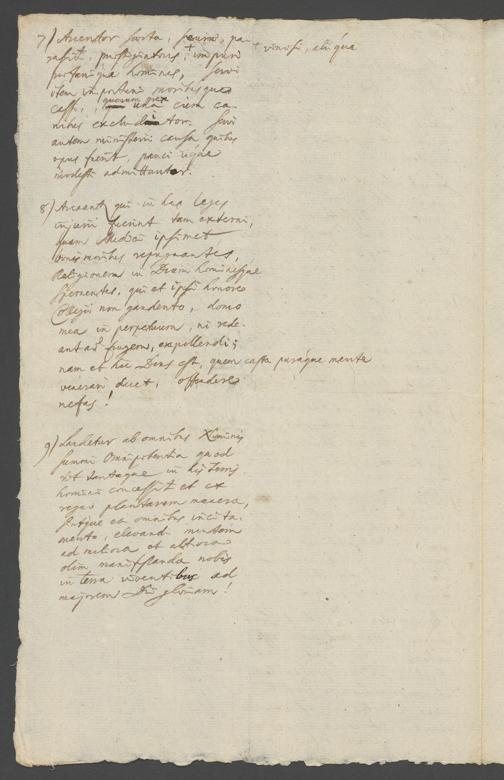 7) Arcentor porta, scurræ, pa-
rasiti, præstigiatores, + impuri + vinosi, aliique
profanique homines, servi
item importuni moribusque
cassi, quorum grex una ciem ca-
nibus excluditor. Servi
autem ministerii causa quibus
opus fierit, pauci iique
modesti admittuntor.
8) Arceant, qui in has Leges
injurii fuerint tam externi,
quam Medici ipsimet
bonis moribus repugnantes,
Religionem in Deum hominesque
spernentes, qui et ipsi honore
Collegii non gaudento, domo
mea in perpetuum, ni rede-
ant ad frugem, expellendi;
nam et hic Deus est, quem casta puraque mente
venerari decet, offendere
nefas!
9) Laudetur ab omnibus Numinis
summi Omnipotentia quod
sit tantaque in his terris
homini concessit et ex
regno plantarum munera,
sintque ea omnibus incita-
mento, elevandi mentem
ad meliora et altiora
olim manifestanda nobis
in terra viventibus ad
majorem Dei gloriam!